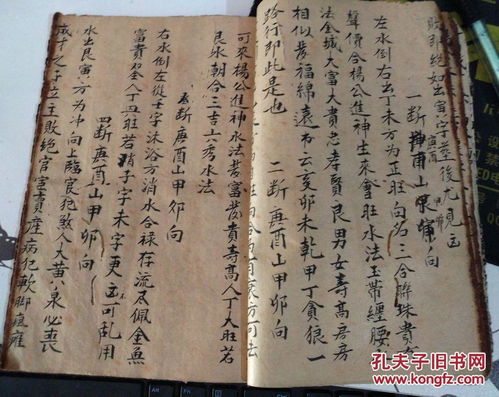 敗絕如出宮字墓後尤見
一斷庚酉山甲卯向
左水倒右出丁未方為正旺向名三合聯珠貴
聲價合楊公進神生來會旺水法玉帶纏腰
法金城大富大貴忠孝賢良男女壽高房房
相似發福綿遠書云亥卯未乾甲丁貪狼一
路行即此是也 二斷庚酉山甲卯向
可來楊公進神水法者富發貴壽高人丁大旺若
艮水朝合三吉六秀水法
三斷庚酉山甲卯向
右水倒左從壬字沐浴方消水合祿存流尽佩金魚
富貴双全人丁興旺若 子字未字更 可乱用
四斷庚酉山甲卯向
水出艮寅方為冲向上臨官犯煞人大黃八泉必喪
成才之子立主敗絕官害貴產病犯軟脚瘋癱
孔夫子旧书网
www.kongfz.com